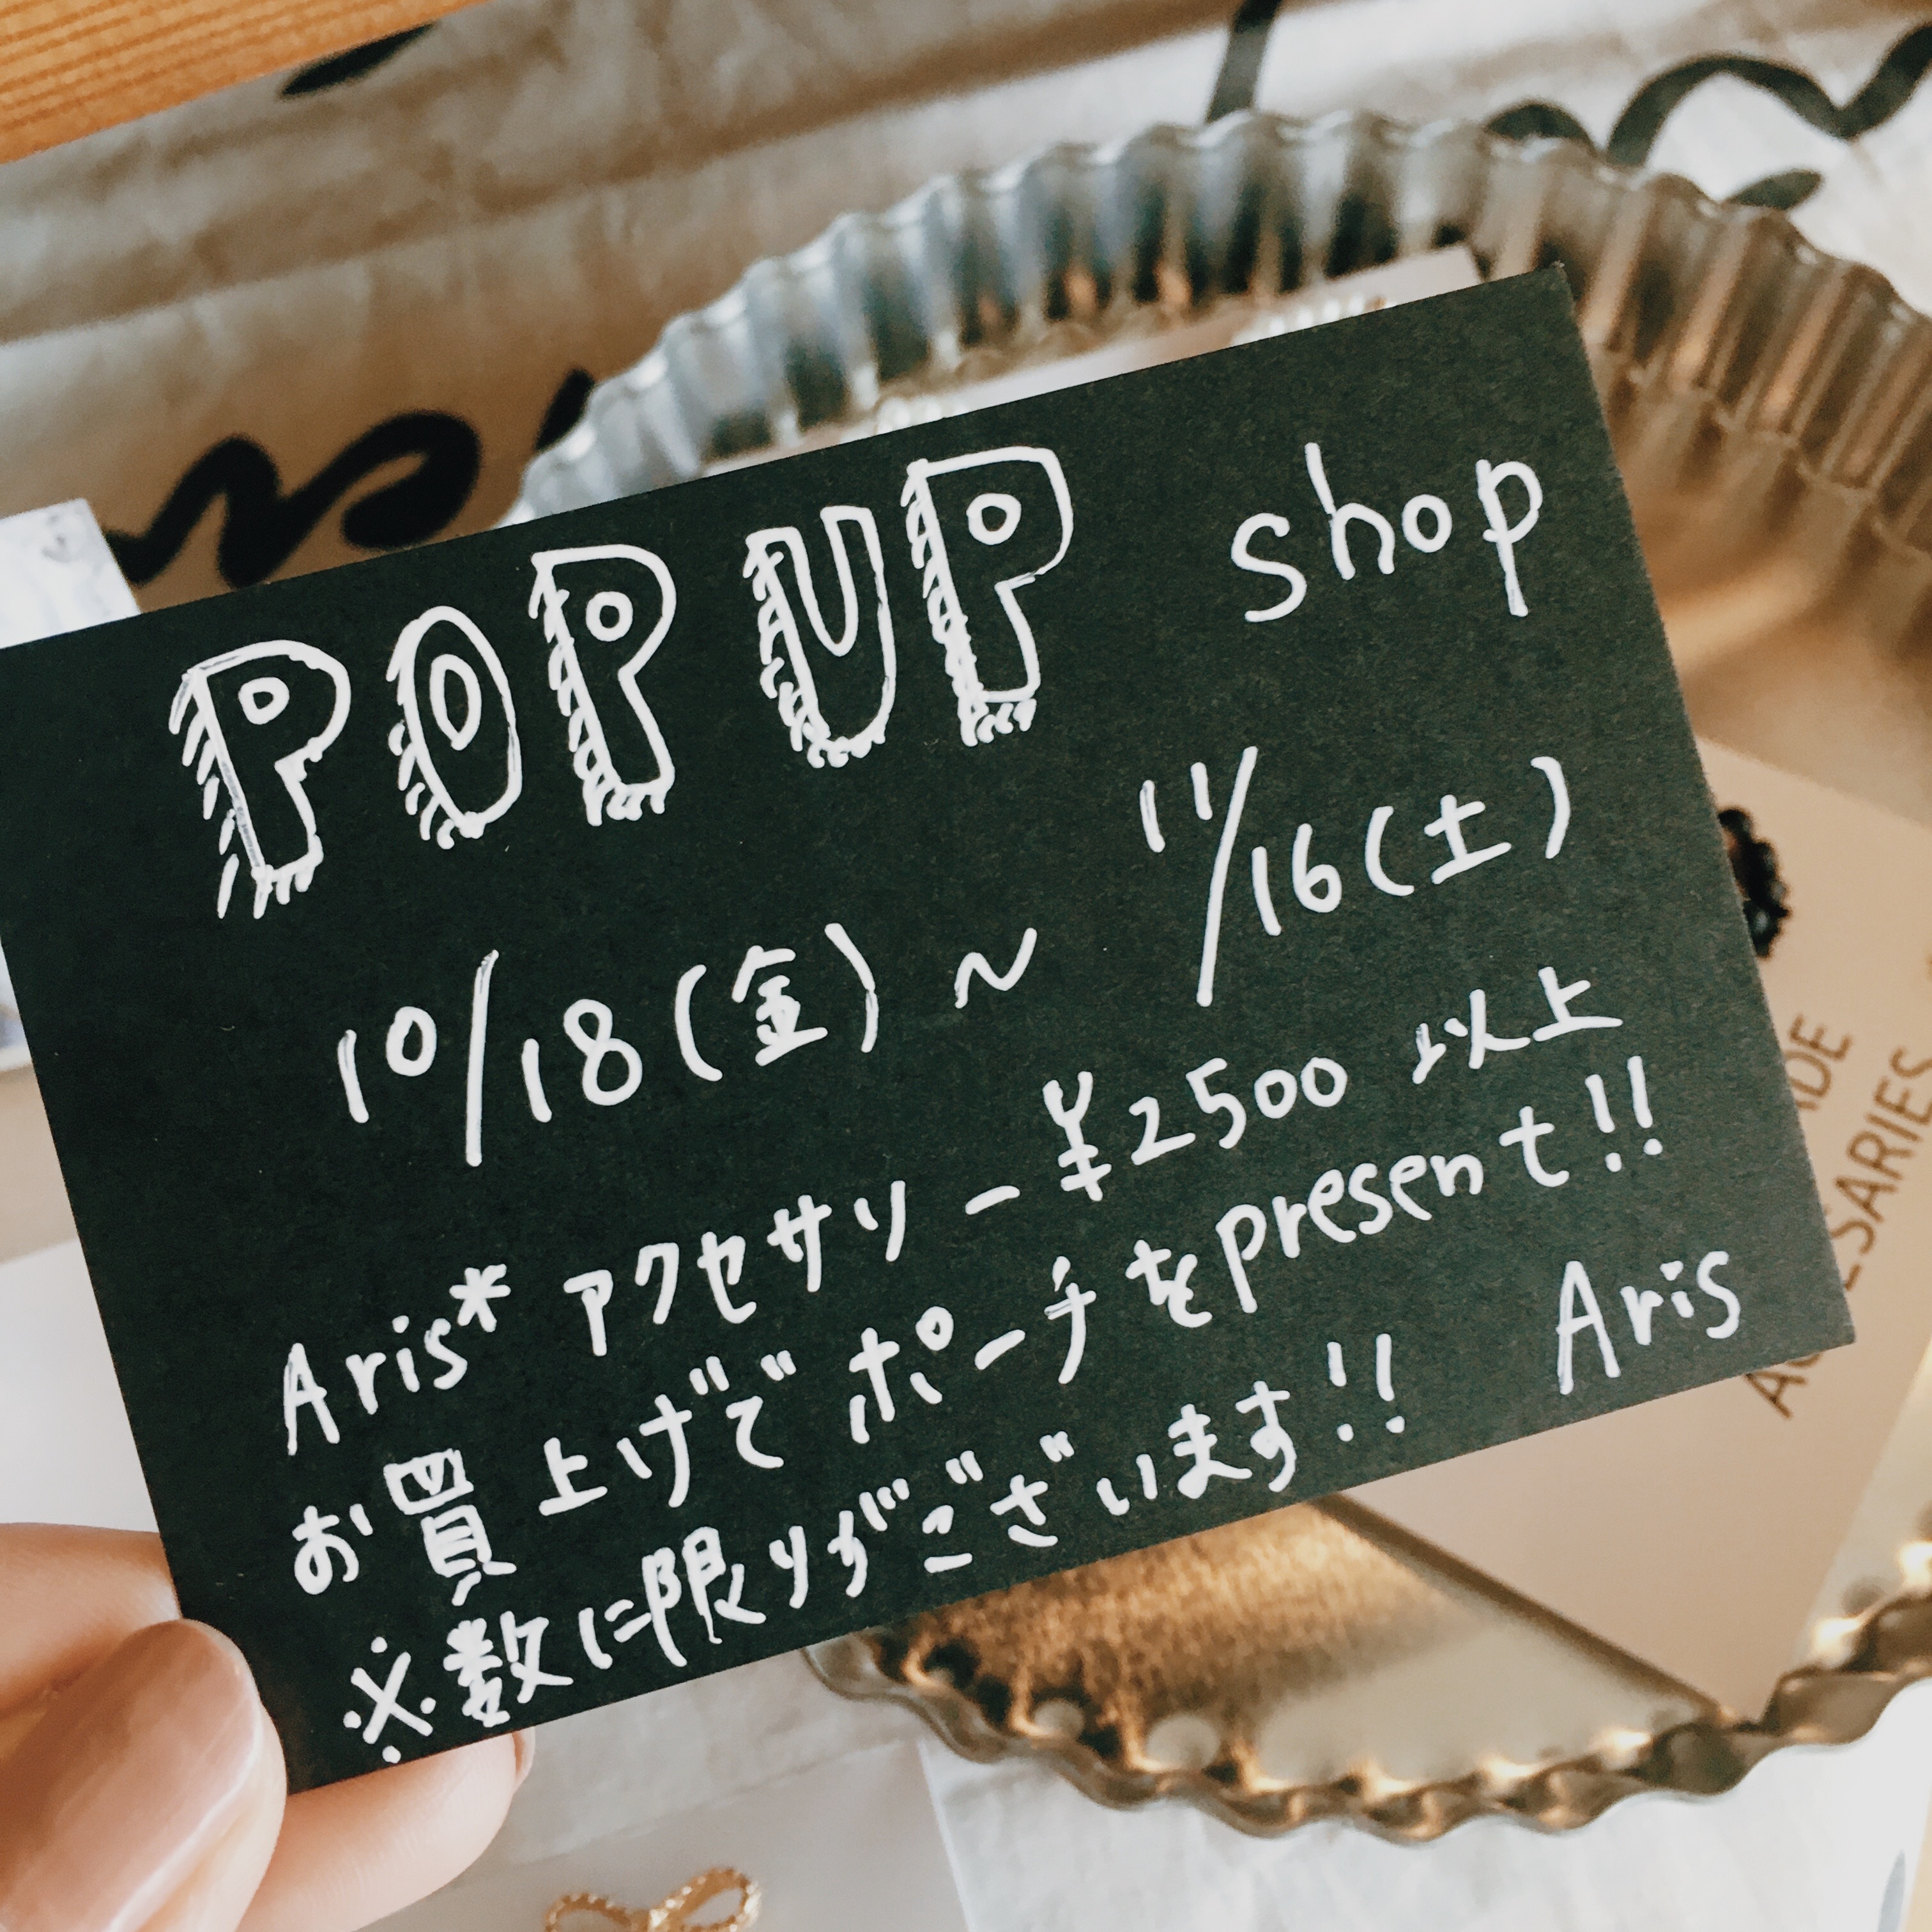 POP UP shop
10/18(金) ~ 11/16(土)
Aris* アクセサリー ¥2500 以上
お買上げでポーチをpresent!!
※数に限りがございます!! Aris